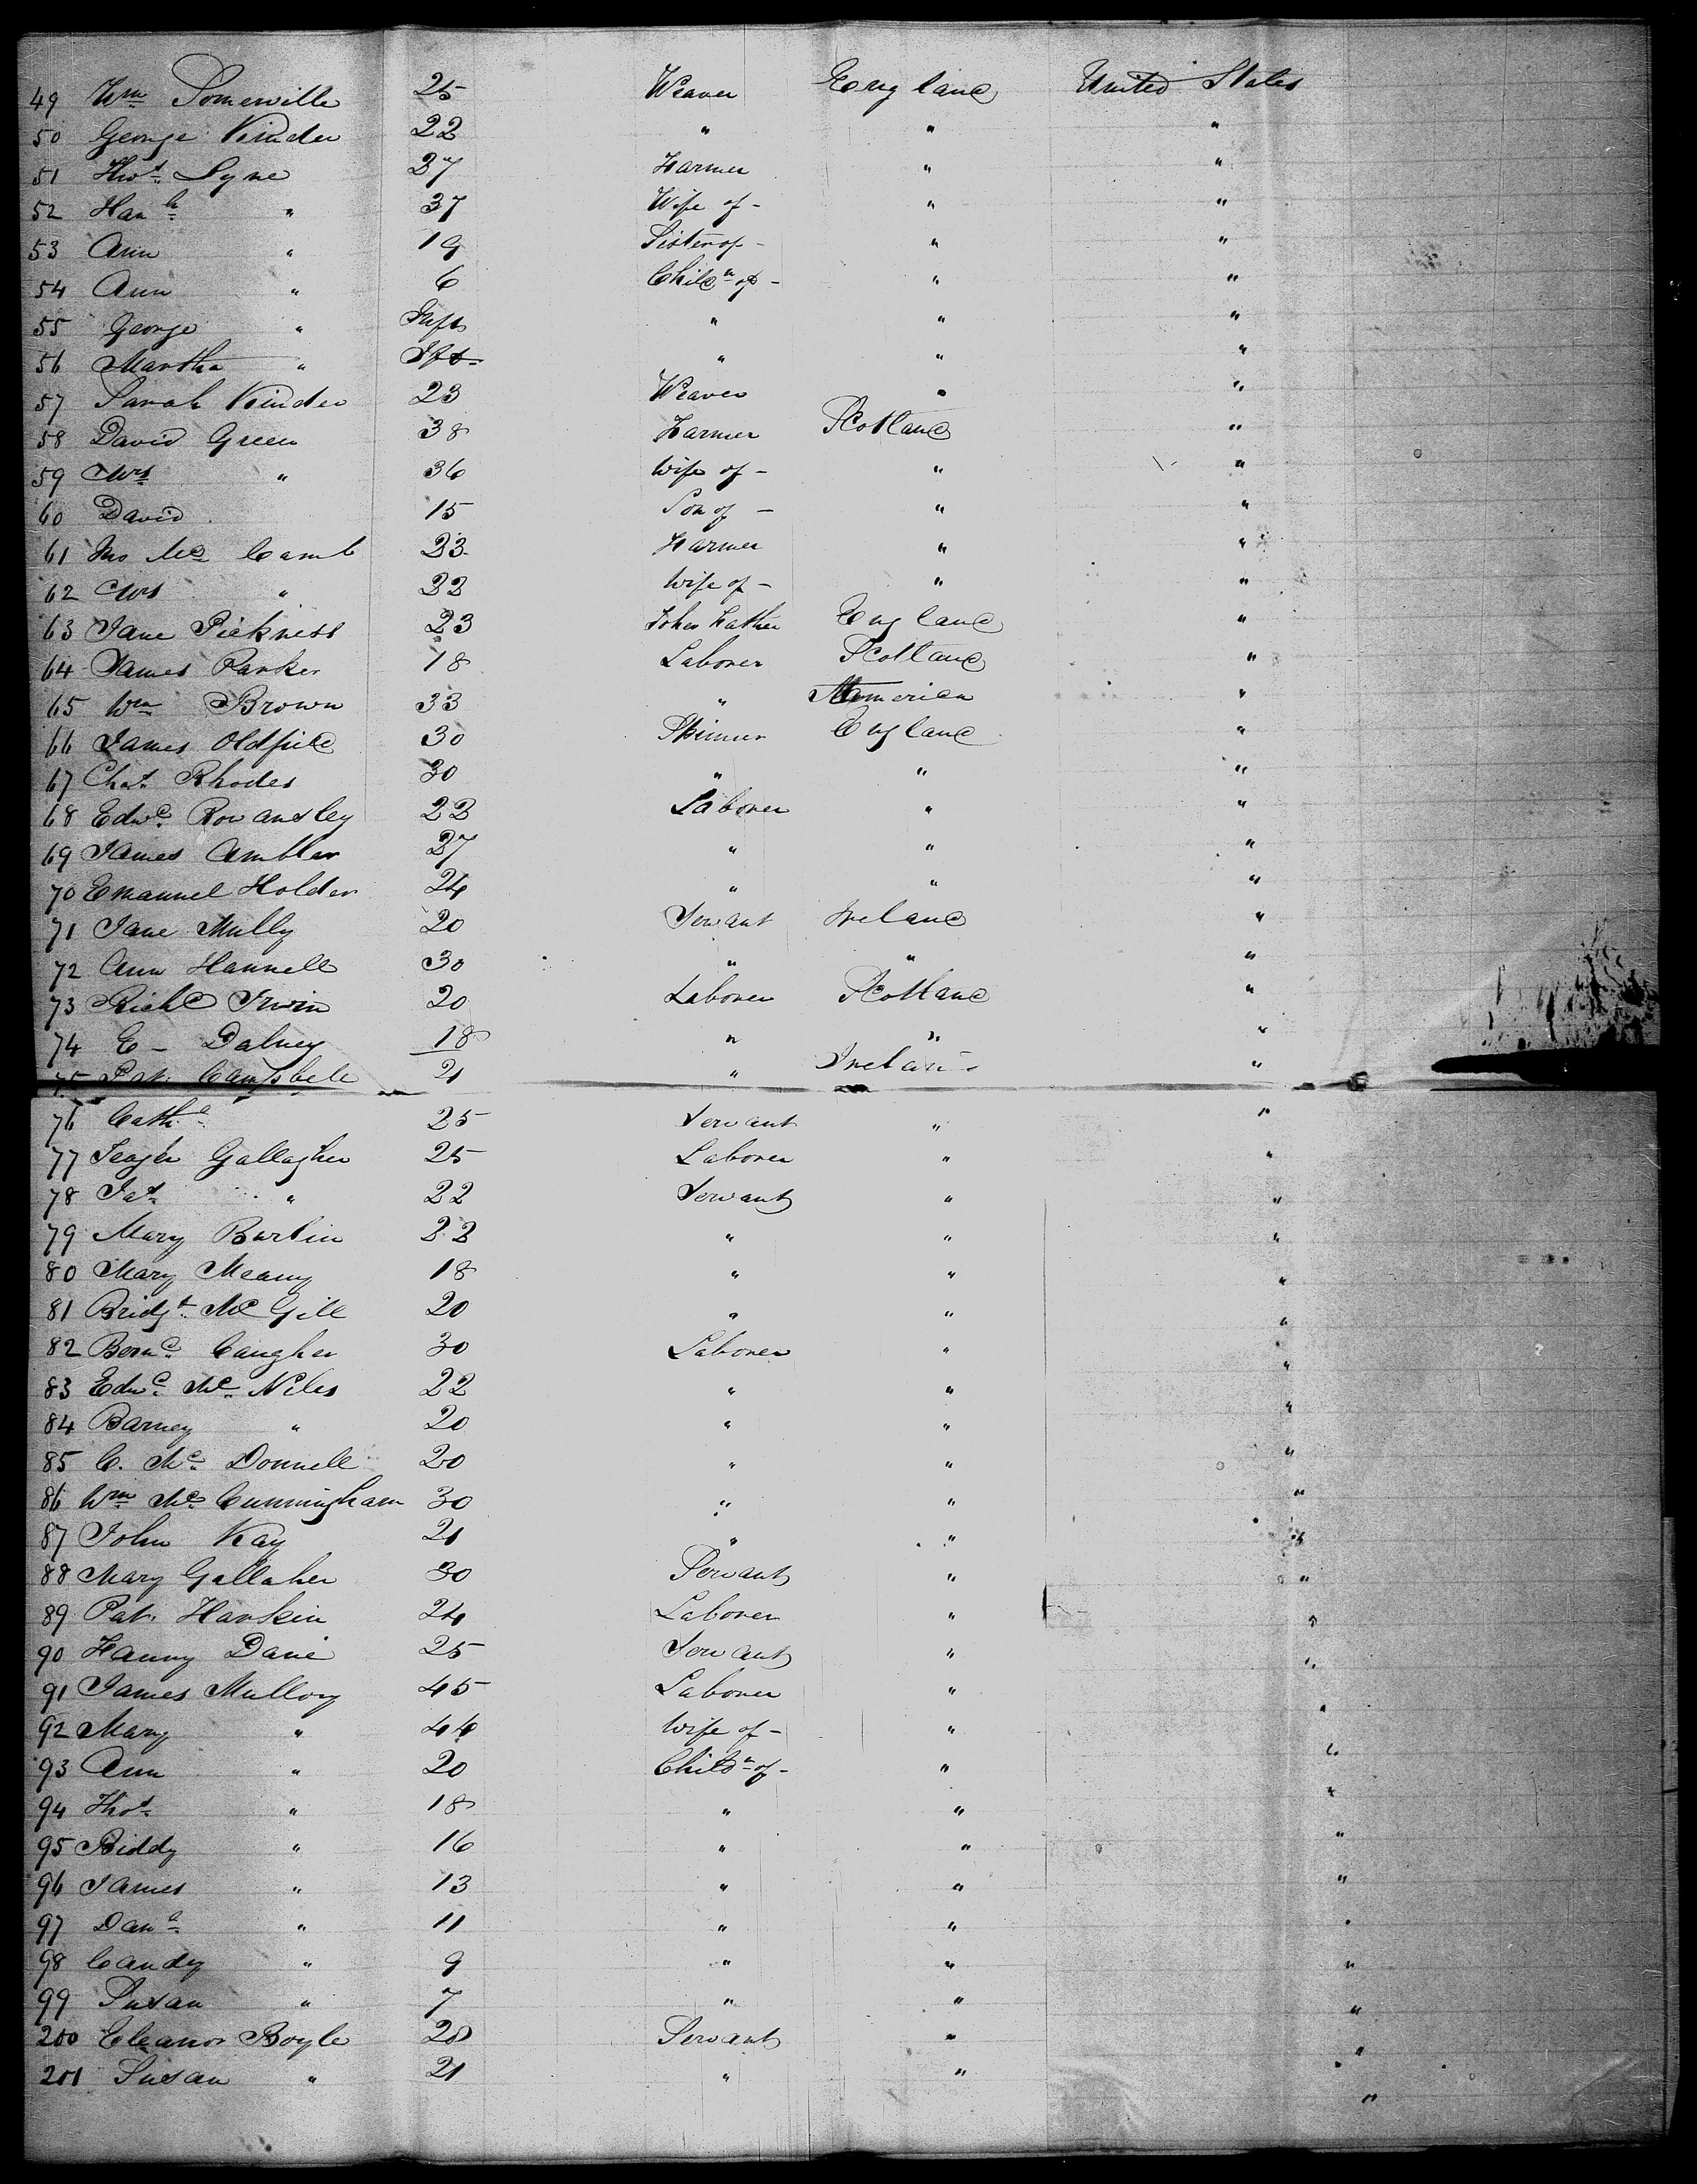 49 Wm Somerville 25 Weaver England United States
50 George Kinder 22 " " "
51 Thos Lyne 37 Farmer " "
52 Hanh " 37 Wife of - " "
53 Ann " 19 Sister of - " "
54 Ann " 6 Childn of - " "
55 George " Inft " " "
56 Martha " Ift " " "
57 Sarah Kinder 23 Weaver " "
58 David Green 38 Farmer Scotland "
59 Mrs " 36 Wife of - " "
60 David 15 Son of - " "
61 Jno Mc Camb 23 Farmer " "
62 Mrs " 22 Wife of - " "
63 Jane Pickness 23 England "
64 James Parker 18 Laborer Scotland "
65 Wm Brown 33 " American "
66 James Oldfield 30 Spinner England "
67 Chas Rhodes 30 " " "
68 Edwd Rowansley 22 Laborer " "
69 James Ambler 27 " " "
70 Emanuel Holder 24 " " "
71 Jane Mully 20 Servant Ireland "
72 Ann Hannell 30 " " "
73 Richd Irwin 20 Laborer Scotland "
74 E - Dalney 18 " " "
75 Pat. Campbell 21 " Ireland "
76 Cathe 25 Servant " "
77 Gallagher 25 Laborer " "
78 Jas " 22 Servant " "
79 Mary Burlin 22 " " "
80 Mary Meany 18 " " "
81 Bridgt Mc Gill 20 " " "
82 Bernd Caugher 30 Laborer " "
83 Edwd Mc Niles 22 " " "
84 Barney " 20 " " "
85 C. Mc Donnell 20 " " "
86 Wm Mc Cunningham 30 " " "
87 John Kay 21 " " "
88 Mary Gallaher 30 Servant " "
89 Pat. Harkin 24 Laborer " "
90 Fanny Davie 25 Servant " "
91 James Mulloy 45 Laborer " "
92 Mary " 44 Wife of - " "
93 Ann " 20 Childn of - " "
94 Thos " 18 " " "
95 Biddy " 16 " " "
96 James " 13 " " "
97 Danl " 11 " " "
98 Candy " 9 " " "
99 Susan " 7 " " "
200 Eleanor Boyle 20 Servant " "
201 Susan " 21 " " "